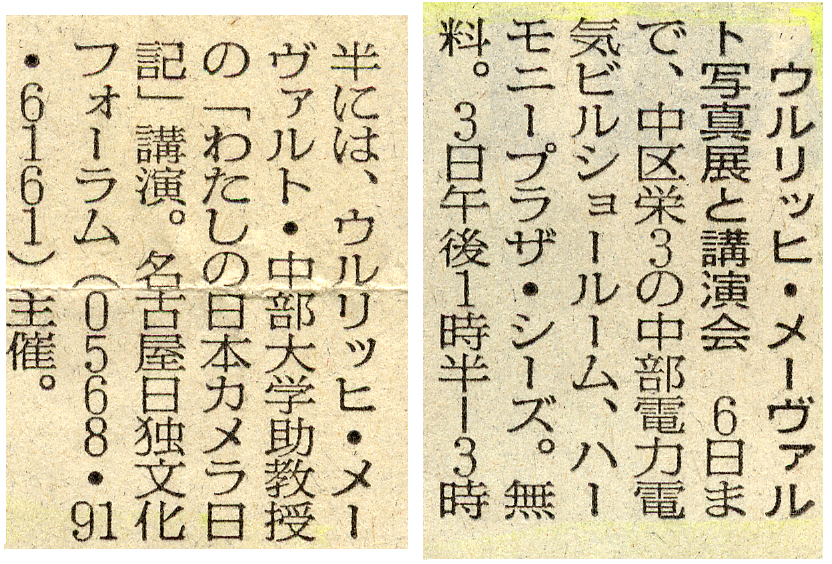 ウルリッヒ・メーヴァル
ト写真展と講演会　6日ま
で、中区栄3の中部電力電
気ビルショールーム、ハー
モニープラザ・シーズ。無
料。3日午後1時半ー3時
半には、ウルリッヒ・メー
ヴァルト・中部大学助教授
の「わたしの日本カメラ日
記」講演。名古屋日独文化
フォーラム（0568・91
・6161）主催。